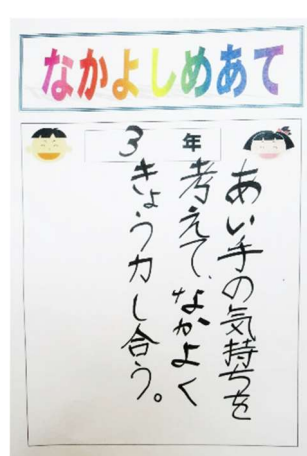 なかよしめあて
3年
あい手の気持ちを
考えて、なかよく
きょう力し合う。